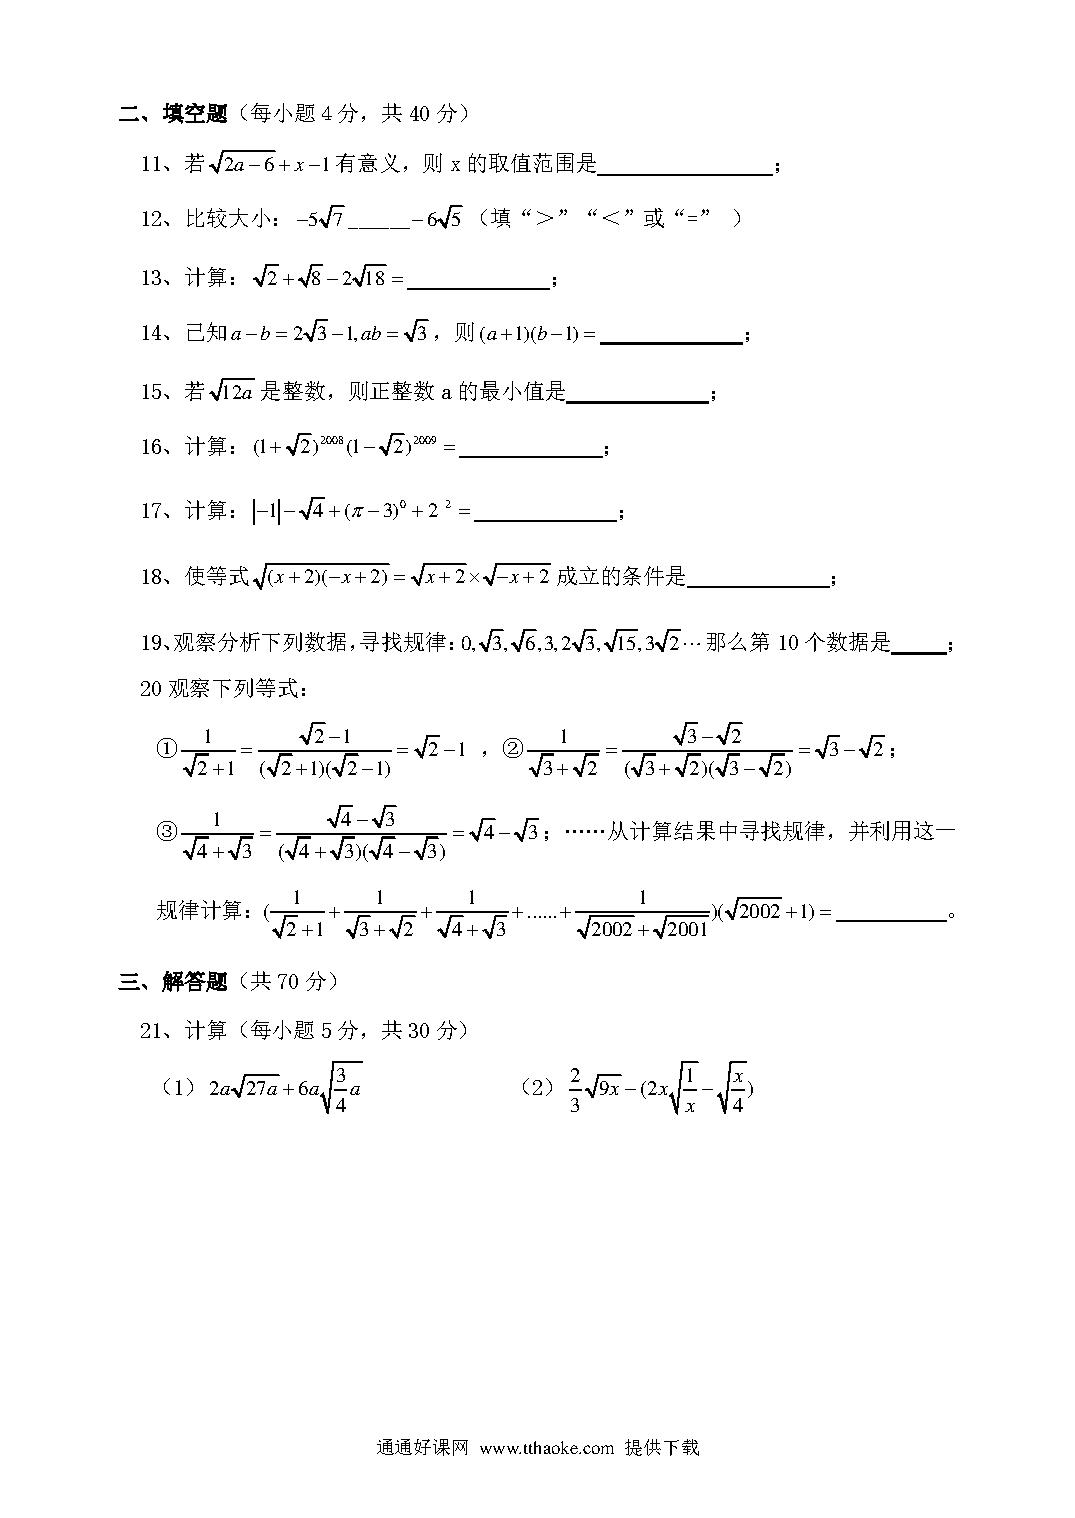 二、填空题（每小题4分，共40分）
11、若 √(2a−6)+x−1 有意义，则 x 的取值范围是________；
12、比较大小：−5√7 ______ −6√5 （填“＞”“＜”或“=” ）
13、计算：√2+√8−2√18 =________；
14、已知 a−b=2√3−1,ab=√3，则 (a+1)(b−1)=________；
15、若 √(12a) 是整数，则正整数 a 的最小值是________；
16、计算：(1+√2)^2008(1−√2)^2009 =________；
17、计算：|−1|−√4+(π−3)^0+2^2 =________；
18、使等式 √((x+2)(−x+2))=√(x+2)×√(−x+2) 成立的条件是________；
19、观察分析下列数据，寻找规律：0,√3,√6,3,2√3,√15,3√2⋯那么第 10 个数据是____；
20 观察下列等式：
① 1/(√2+1)=(√2−1)/((√2+1)(√2−1))=√2−1 ，② 1/(√3+√2)=(√3−√2)/((√3+√2)(√3−√2))=√3−√2；
③ 1/(√4+√3)=(√4−√3)/((√4+√3)(√4−√3))=√4−√3；……从计算结果中寻找规律，并利用这一
规律计算：(1/(√2+1)+1/(√3+√2)+1/(√4+√3)+......+1/(√2002+√2001))(√2002+1)=________。
三、解答题（共70分）
21、计算（每小题5分，共30分）
（1）2a√(27a)+6a√(3/4 a) （2）2/3√(9x)−(2x√(1/x)−√(x/4))
通通好课网 www.tthaoke.com 提供下载